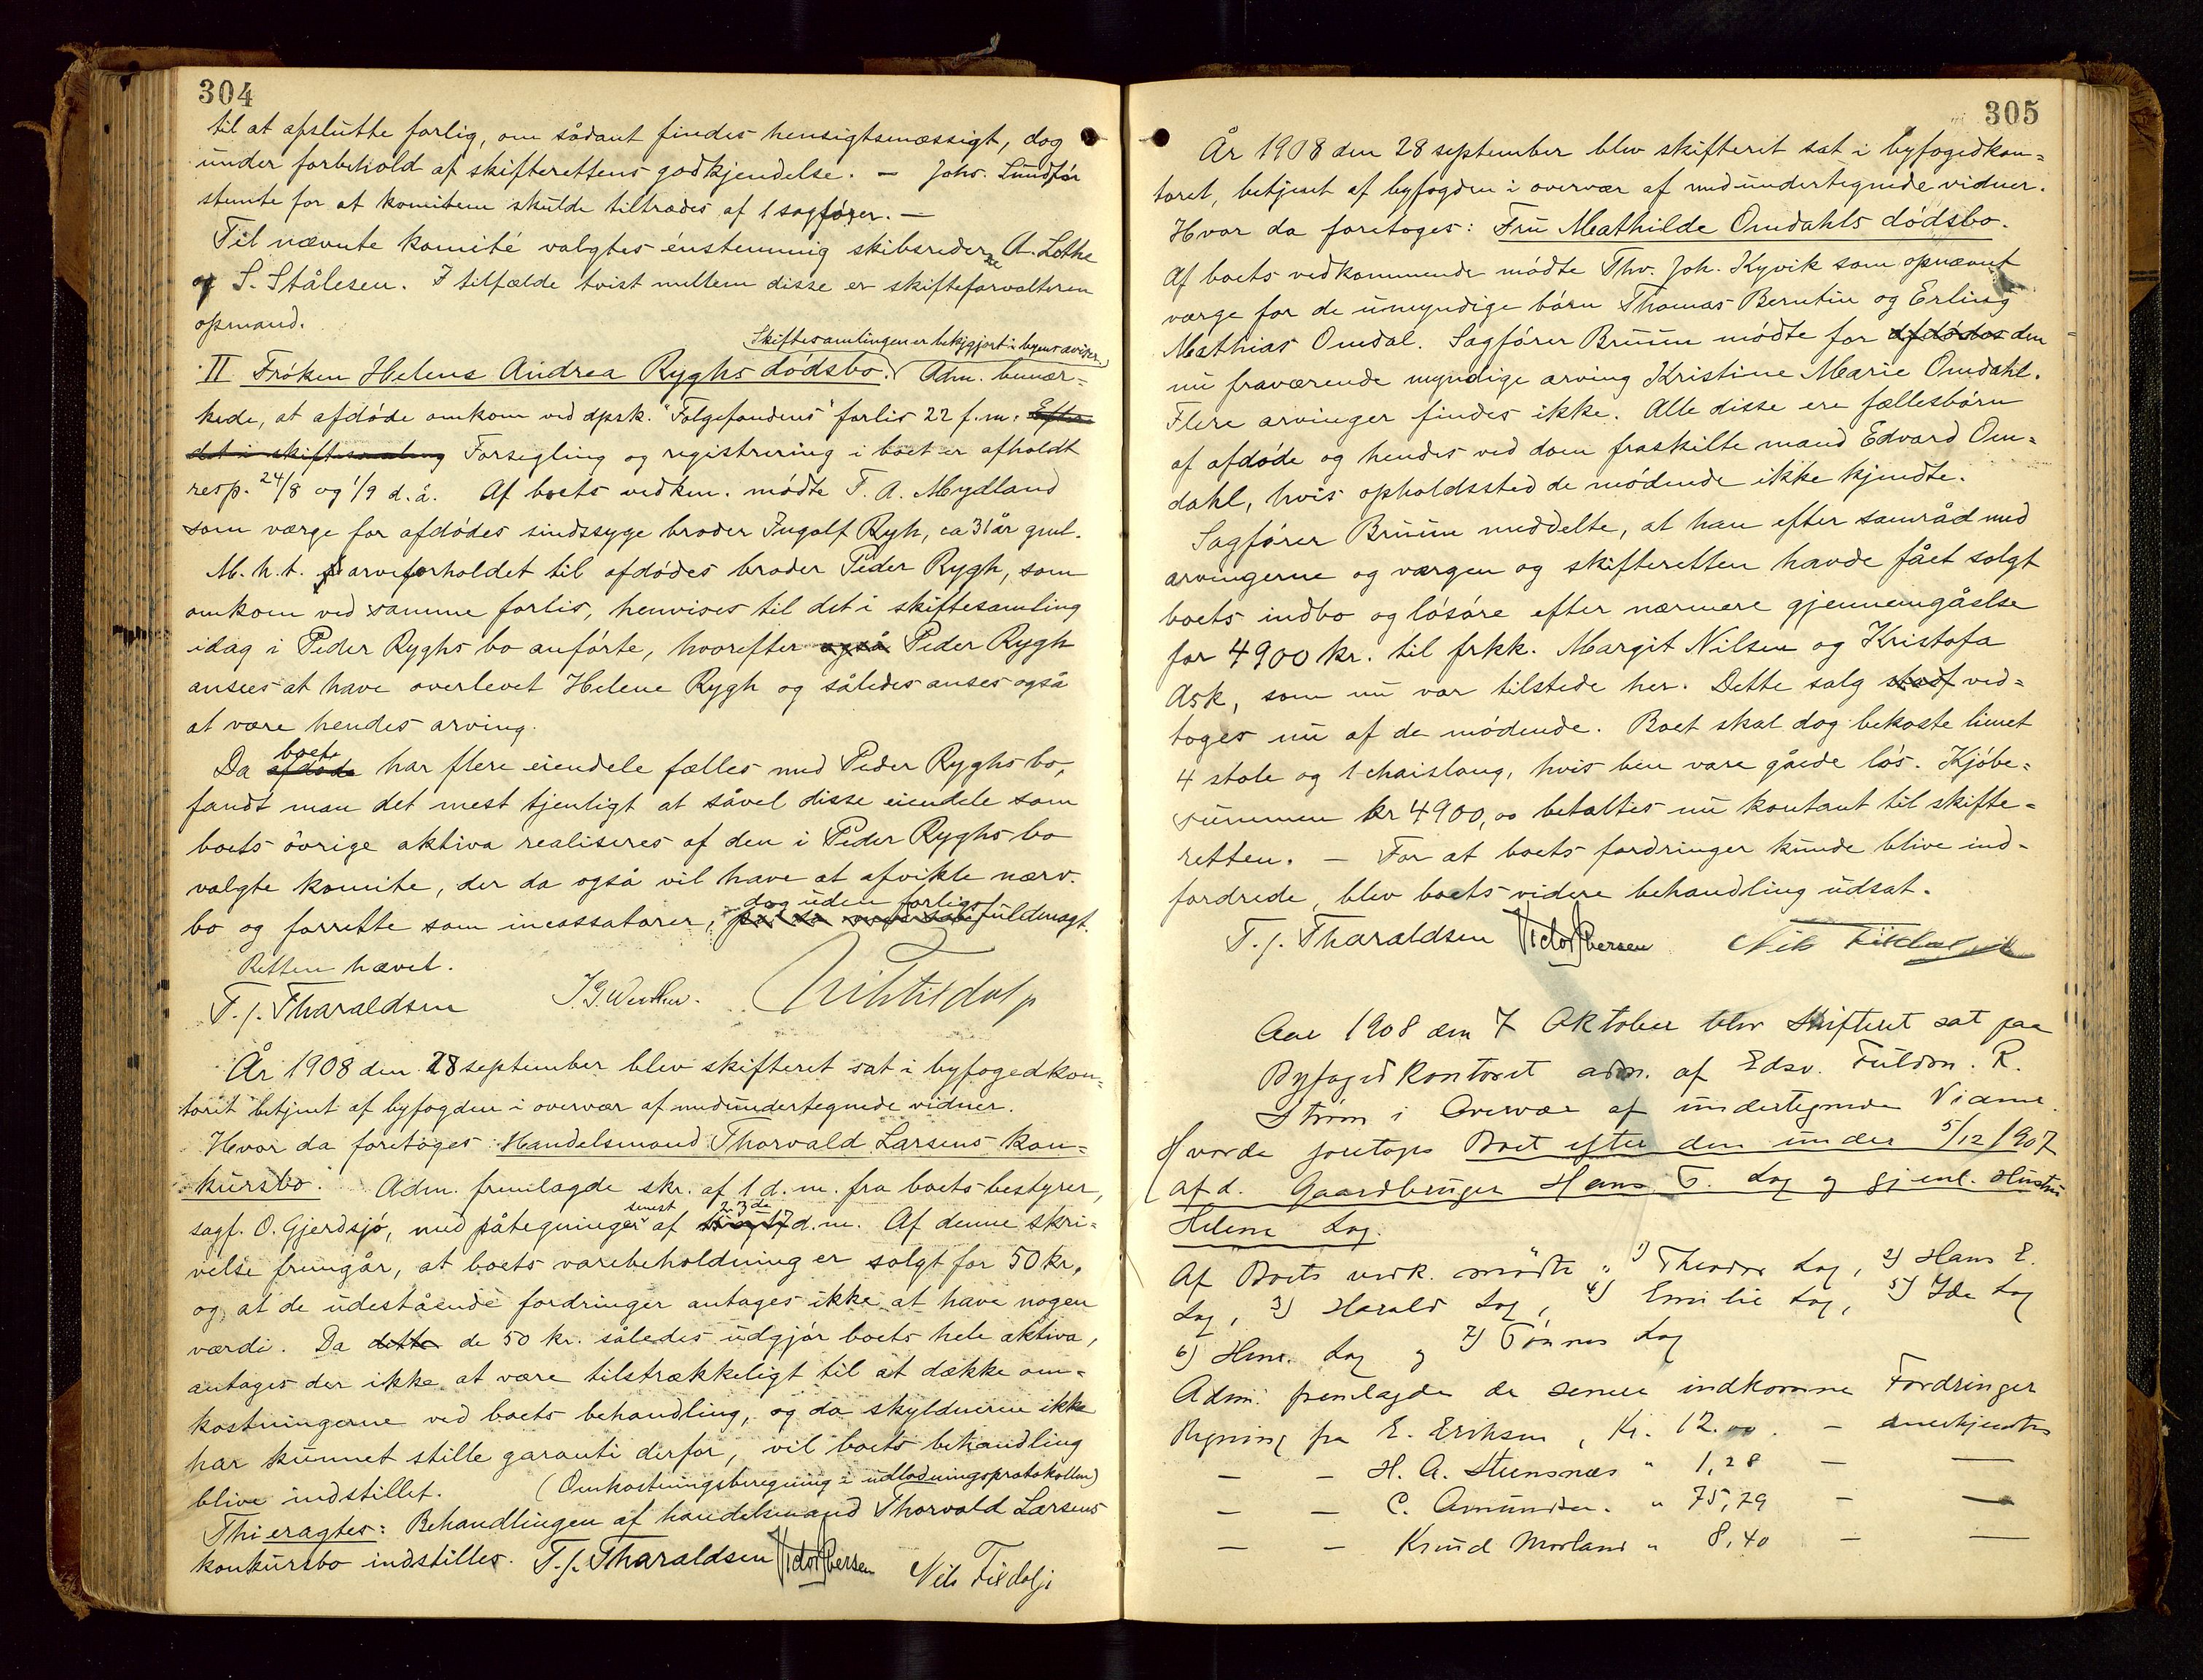 304
til at afslutte forlig, om sådant findes hensigtsmæssigt, dog
under forbehold af skifterettens godkjendelse. — Johs. Lundför
stemte for at komitéen skulde tiltrædes af 1 sagförer. —
Til nævnte komité valgtes énstemmig skibsrederne A. Lothe
og S. Stålesen. I tilfælde tvist mellem disse er skifteforvalteren
opmand.
Skiftesamlingen er bekjgjort i byens aviser.
II Fröken Helene Andrea Ryghs dödsbo. Adm. bemær-
kede, at afdöde omkom ved dpsk. "Folgefondens" forlis 22 f. m. Efter
det i skiftesamling Forsegling og registrering i boet er afholdt
resp. 24/8 og 1/9 d. å. Af boets vedkm. mödte T. A. Mydland
som værge for afdödes sindssyge broder Ingolf Rygh, ca 31 år gml.
M. h. t. arveforholdet til afdödes broder Peder Rygh, som
omkom ved samme forlis, henvises til det i skiftesamling
idag i Peder Ryghs bo anförte, hvorefter også Peder Rygh
ansees at have overlevet Helene Rygh og således anses også
at være hendes arving.
Da afdöde boets har flere eiendele fælles med Peder Ryghs bo,
fandt man det mest tjenligt at såvel disse eiendele som
boets övrige aktiva realiseres af den i Peder Ryghs bo
valgte komite, der da også vil have at afvikle nærv.
dog uden forligs
bo og forrette som incassatorer, fuldmagt.
Retten hævet.
T. J. Tharaldsen
År 1908 den 28 september blev skifteret sat i byfogedkon-
toret betjent af byfogden i overvær af medundertegnede vidner.
Hvor da foretoges: Handelsmand Thorvald Larsens kon-
kursbo. Adm. fremlagde skr. af 1 d. m. fra boets bestyrer,
senest 23de
sagf. O. Gjerdsjö, med påtegninger af d. m. Af denne skri-
velse fremgår, at boets varebeholdning er solgt for 50 kr.
og at de udestående fordringer antages ikke at have nogen
værdi. Da dette de 50 kr. således udgjör boets hele aktiva,
antages der ikke at være tilstrækkeligt til at dække om-
kostningerne ved boets behandling, og da skyldneren ikke
har kunnet stille garanti derfor, vil boets behandling
blive indstillet. (Omkostningsberegning i udlodningsprotokollen)
Thi eragtes: Behandlingen af handelsmand Thorvald Larsens
konkursbo indstilles. T. J. Tharaldsen Victor Iversen Nils Tisdalj
305
År 1908 den 28 september blev skifteret sat i byfogedkon-
toret, betjent af byfogden i overvær af medundertegnede vidner.
Hvor da foretoges: Fru Mathilde Omdahls dödsbo.
Af boets vedkommende mödte Thv. Joh. Kyvik som opnævnt
værge for de umyndige börn Thomas Berntin og Erling
Mathias Omdal. Sagförer Bruun mödte for afdödes den
nu fraværende myndige arving Kristine Marie Omdahl.
Flere arvinger findes ikke. Alle disse ere fællesbörn
af afdöde og hendes ved dom fraskilte mand Edvard Om-
dahl, hvis opholdssted de mödende ikke kjendte.
Sagförer Bruun meddelte, at han efter samråd med
arvingerne og værgen og skifteretten havde fået solgt
boets indbo og lösöre efter nærmere gjennemgåelse
for 4900 kr. til frkk. Margit Nilsen og Kristofa
Ask, som nu var tilstede her. Dette salg ved-
toges nu af de mödende. Boet skal dog bekoste limet
4 stole og 1 chaislong, hvis ben vare gåede lös. Kjöbe-
summen kr 4900,00 betaltes nu kontant til skifte-
retten. — For at boets fordringer kunde blive ind-
fordrede, blev boets videre behandling udsat.
T. J. Tharaldsen Victor Iversen
Aar 1908 den 7 Oktober blev Skifteret sat paa
Byfogedkontoret adm. af Edsv. Fuldm. R.
Ström i Overvær af undertegnede Vidner.
Hvorda foretoges Boet efter den under 5/12 1907
afd. Gaardbruger Hans T. Lag og gjenl. Hustru
Helene Lag.
Af Boets vedk. mödte 1) Theodor Lag, 2) Hans E.
Lag, 3) Harald Lag, 4) Emilie Lag, 5) Ida Lag
6) Henr. Lag og 7) Tönnes Lag
Adm. fremlagde de senere indkomne Fordringer
Regning fra E. Eriksen, Kr. 12.00. — anerkjendtes
— — H. A. Steensnæs " 1,28 — —
— — C. Amundsen. " 75,79 — —
— — Knud Morland " 8,40 — —